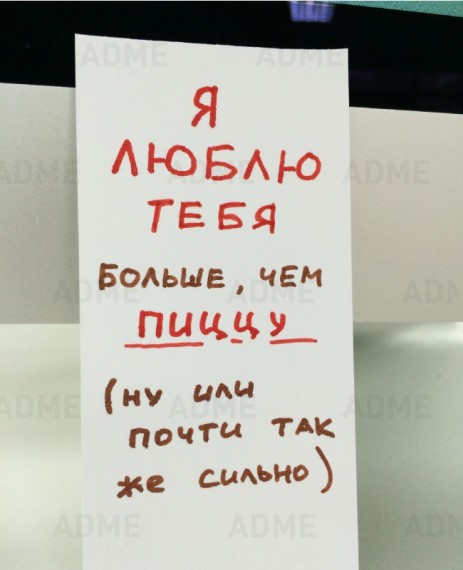 Я
ЛЮБЛЮ
ТЕБЯ
БОЛЬШЕ, ЧЕМ
ПИЦЦУ
(НУ ИЛИ
ПОЧТИ ТАК
ЖЕ СИЛЬНО)
ADME ADME
ADME ADME ADME
ADME ADME ADM
ADME ADME ADME
ADME ADME ADM